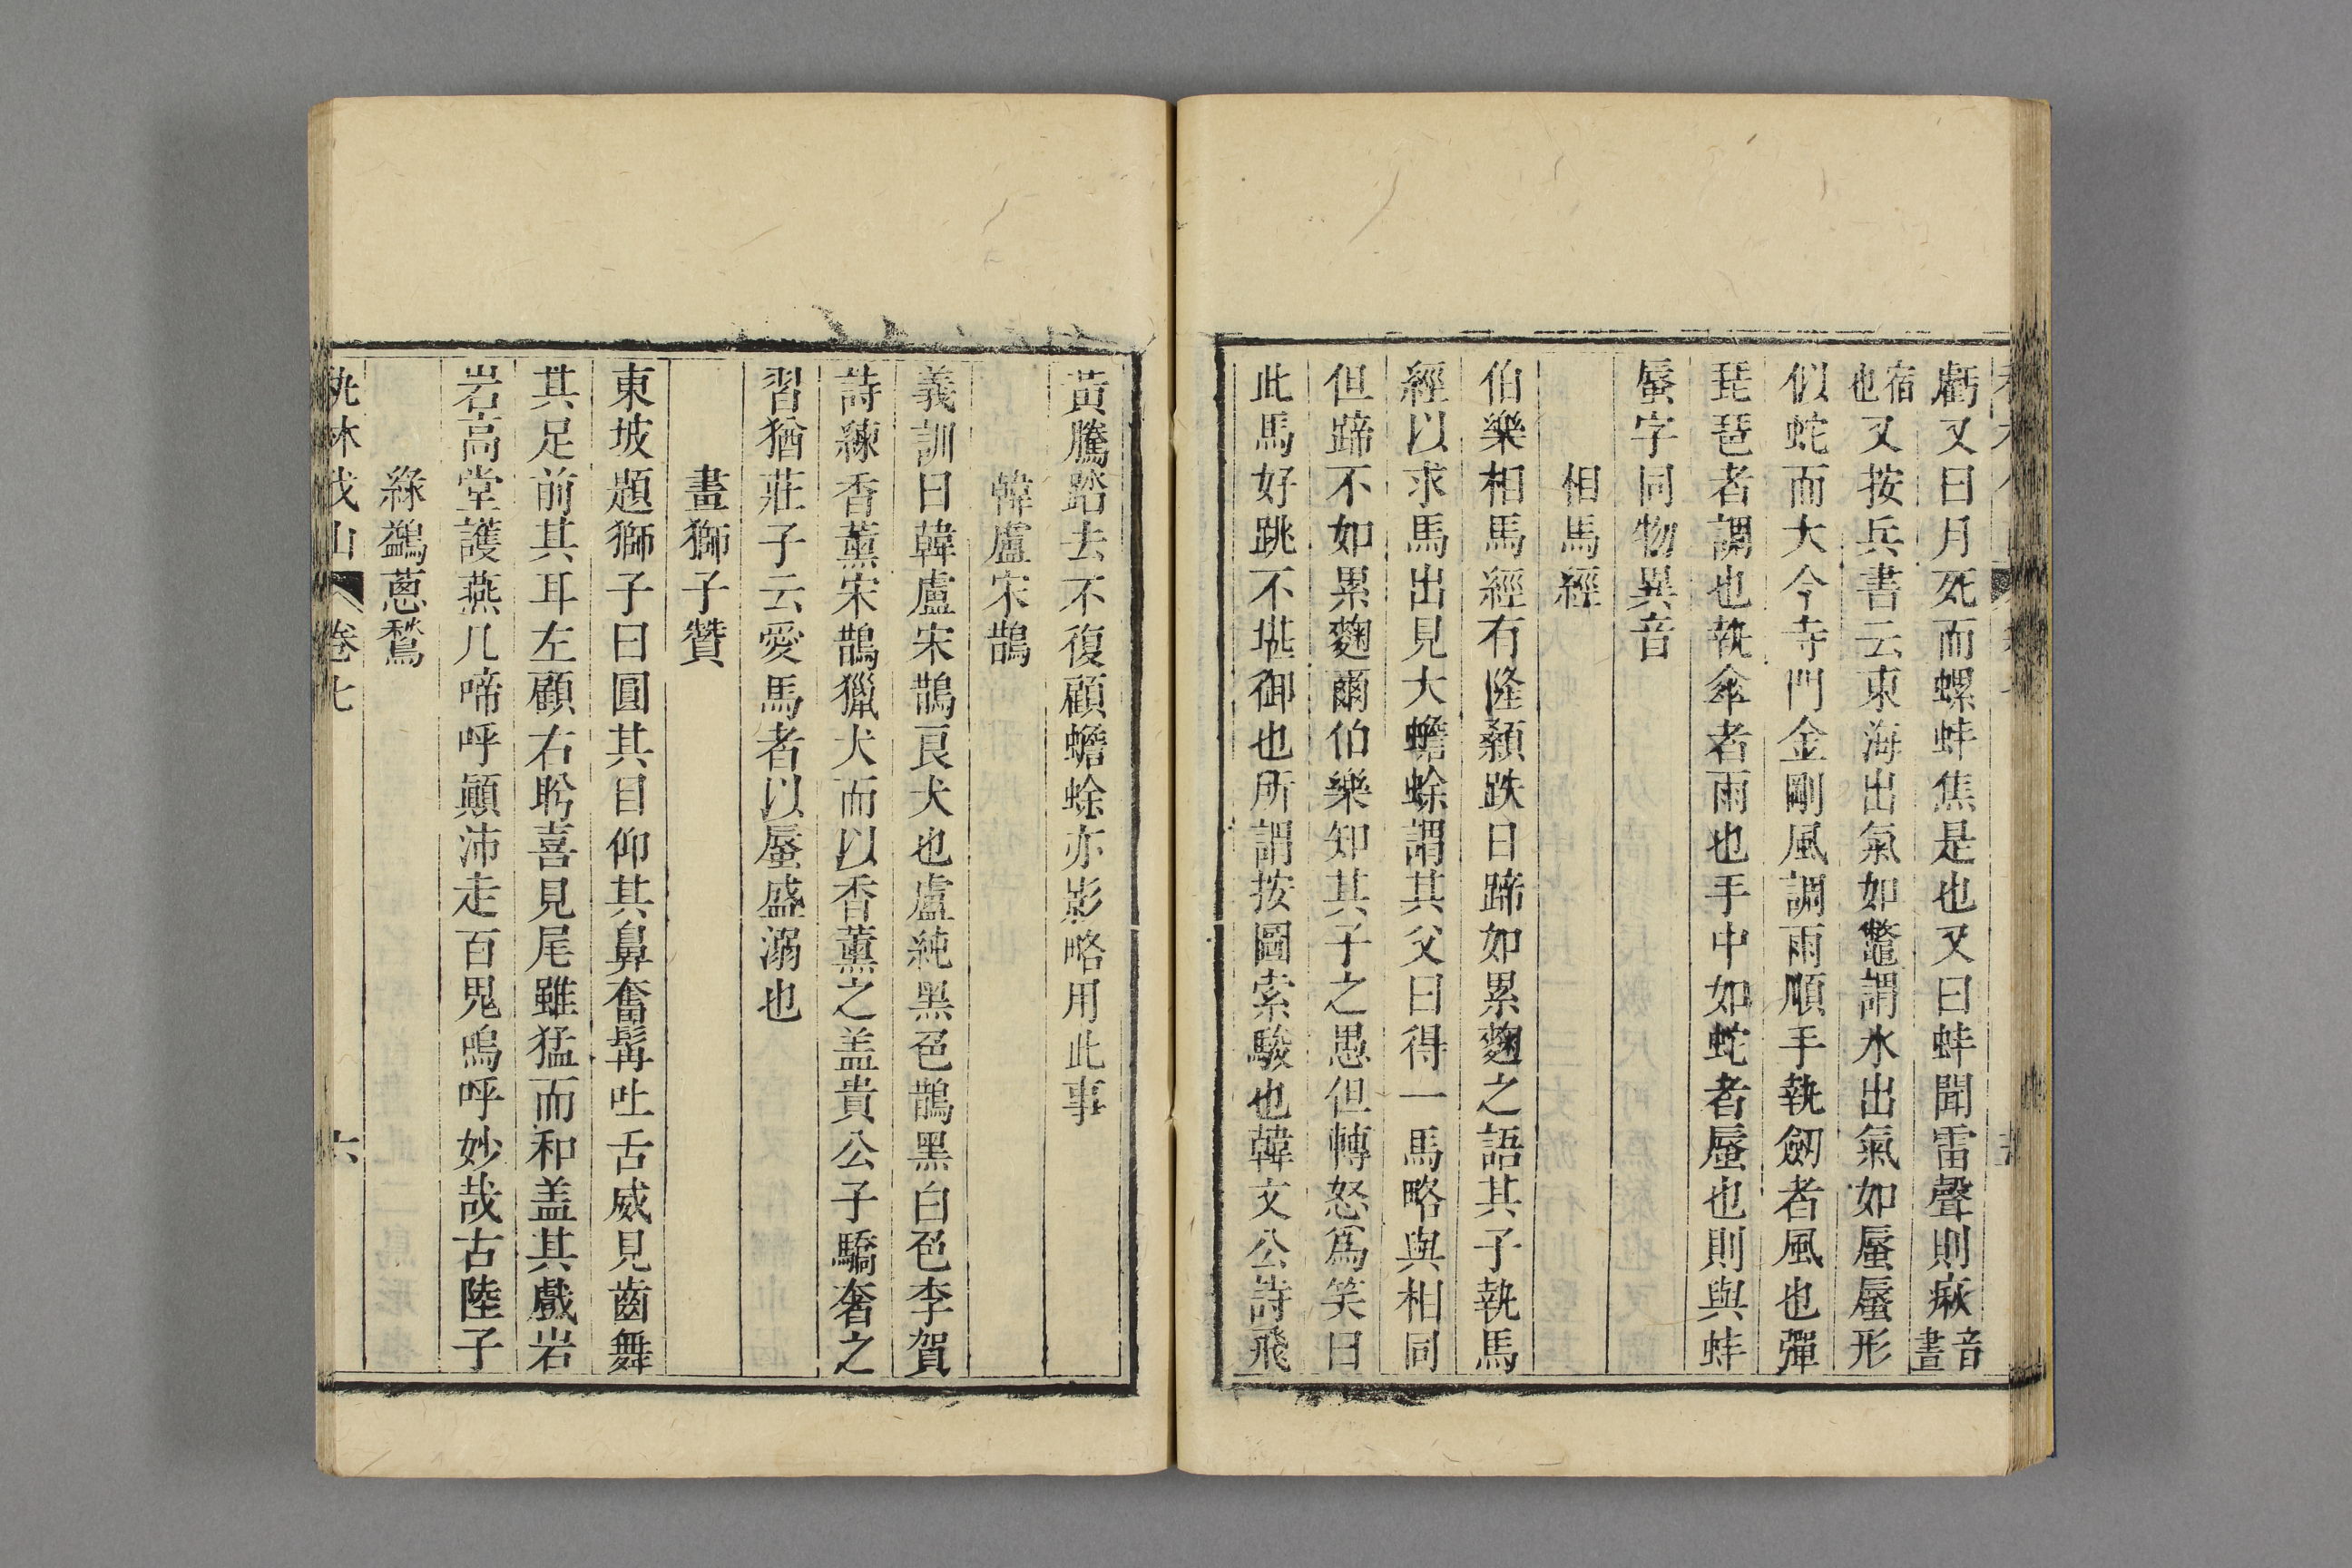 虧又曰月死而螺蚌焦是也又曰蚌聞雷聲則瘷音晝
宿也又按兵書云東海出氣如鼈謂水出氣如蜃蜃形
似蛇而大今寺門金剛風調雨順手執劒者風也彈
琵琶者調也執傘者雨也手中如蛇者蜃也則與蚌
蜃字同物異音
相馬經
伯樂相馬經有隆顙跌日蹄如累麴之語其子執馬
經以求馬出見大蟾蜍謂其父曰得一馬略與相同
但蹄不如累麴爾伯樂知其子之愚但轉怒爲笑曰
此馬好跳不堪御也所謂按圖索駿也韓文公詩飛
黃騰踏去不復顧蟾蜍亦影略用此事
韓盧宋鵲
義訓曰韓盧宋鵲良犬也盧純黑色鵲黑白色李賀
詩練香薰宋鵲獵犬而以香薰之盖貴公子驕奢之
習猶莊子云愛馬者以蜃盛溺也
畫獅子贊
東坡題獅子曰圓其目仰其鼻奮髯吐舌威見齒舞
其足前其耳左顧右盻喜見尾雖猛而和盖其戲岩
岩高堂護燕几啼呼顚沛走百鬼嗚呼妙哉古陸子
綠鷁蔥鶖
秇林伐山 卷七 六